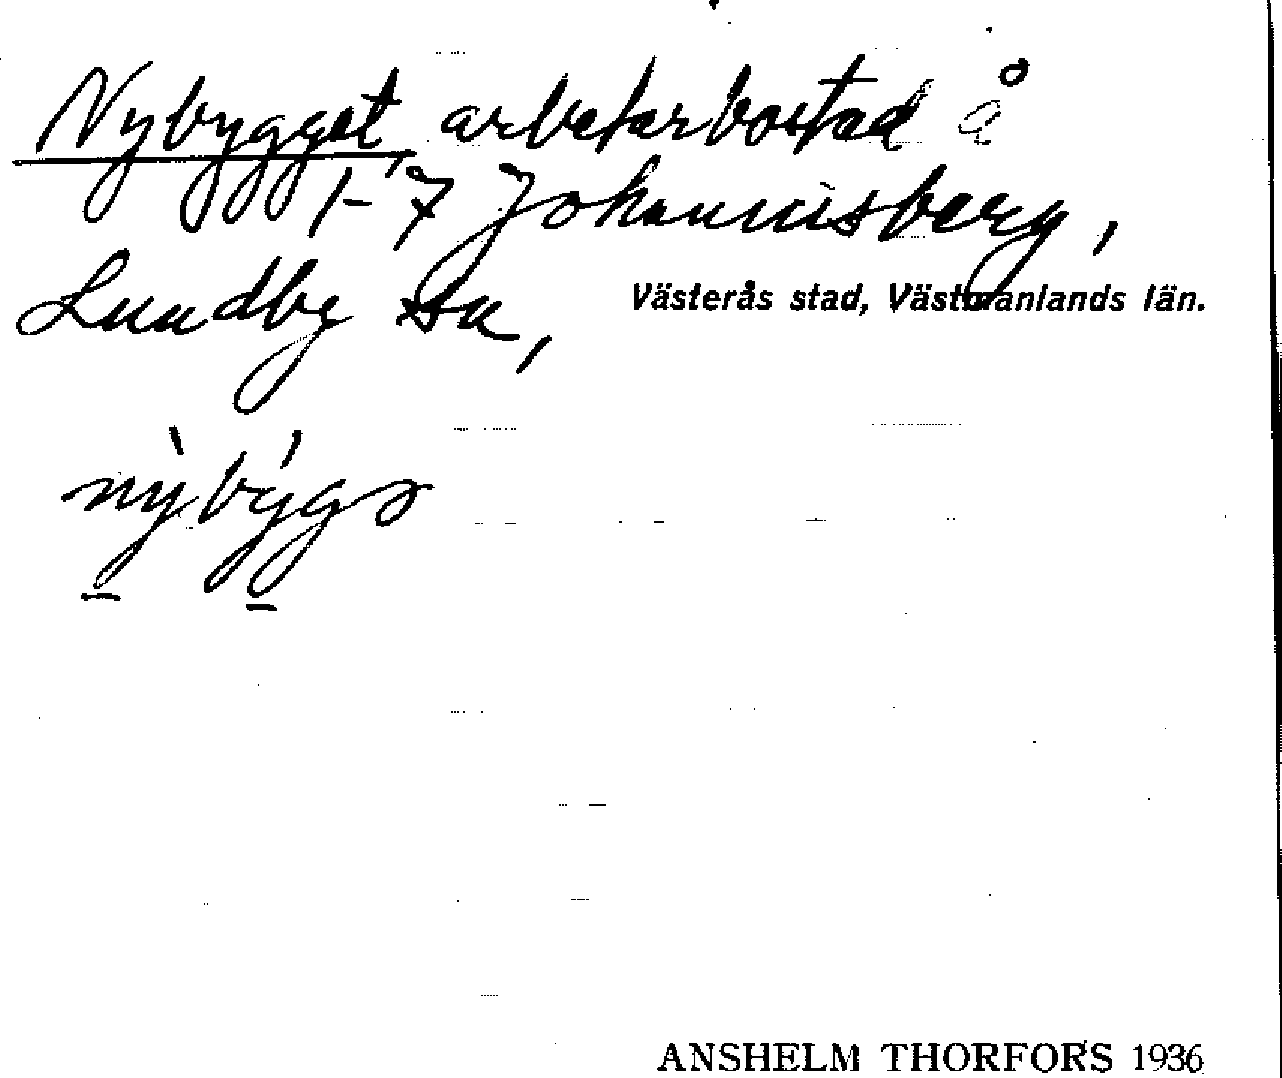 Nybygget, arbetarbostad å
1-7 Johannisberg,
Lundby sn, Västerås stad, Västmanlands län.
nỳbýgə
ANSHELM THORFORS 1936